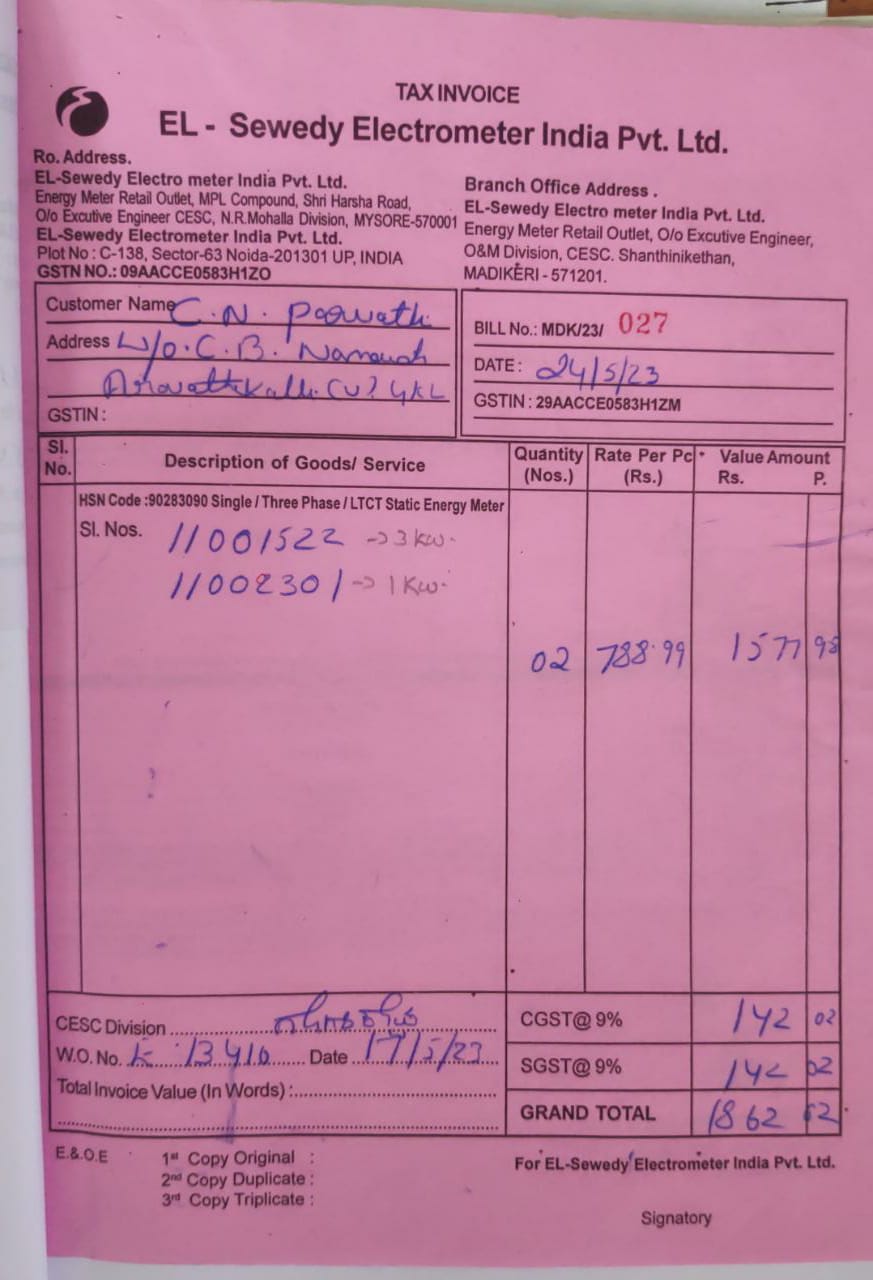 TAX INVOICE
EL - Sewedy Electrometer India Pvt. Ltd.
Ro. Address.
EL-Sewedy Electro meter India Pvt. Ltd.
Energy Meter Retail Outlet, MPL Compound, Shri Harsha Road,
O/o Excutive Engineer CESC, N.R.Mohalla Division, MYSORE-570001
EL-Sewedy Electrometer India Pvt. Ltd.
Plot No : C-138, Sector-63 Noida-201301 UP, INDIA
GSTN NO.: 09AACCE0583H1ZO
Branch Office Address .
EL-Sewedy Electro meter India Pvt. Ltd.
Energy Meter Retail Outlet, O/o Excutive Engineer,
O&M Division, CESC. Shanthinikethan,
MADIKERI - 571201.
Customer Name C.N.
Address W/o. C.B.
GSTIN :
BILL No.: MDK/23/ 027
DATE : 24/5/23
GSTIN : 29AACCE0583H1ZM
Sl. No. Description of Goods/ Service Quantity (Nos.) Rate Per Pc (Rs.) Value Amount Rs. P.
HSN Code :90283090 Single / Three Phase / LTCT Static Energy Meter
Sl. Nos. 11001522 -> 3 kw.
11002301 -> 1 kw.
02 788.99 1577 98
CESC Division
W.O. No. K 13416 Date 17/5/23
Total Invoice Value (In Words) :
CGST@ 9% 142 02
SGST@ 9% 142 02
GRAND TOTAL 1862 02
E.& O.E
1st Copy Original :
2nd Copy Duplicate :
3rd Copy Triplicate :
For EL-Sewedy Electrometer India Pvt. Ltd.
Signatory